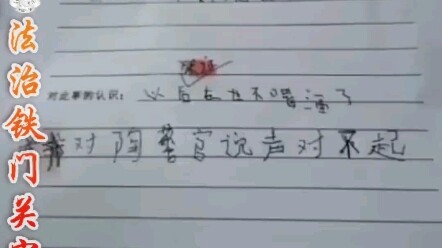 法治铁门关市
对此事的认识：以后在也不喝酒了
我对陶警官说声对不起